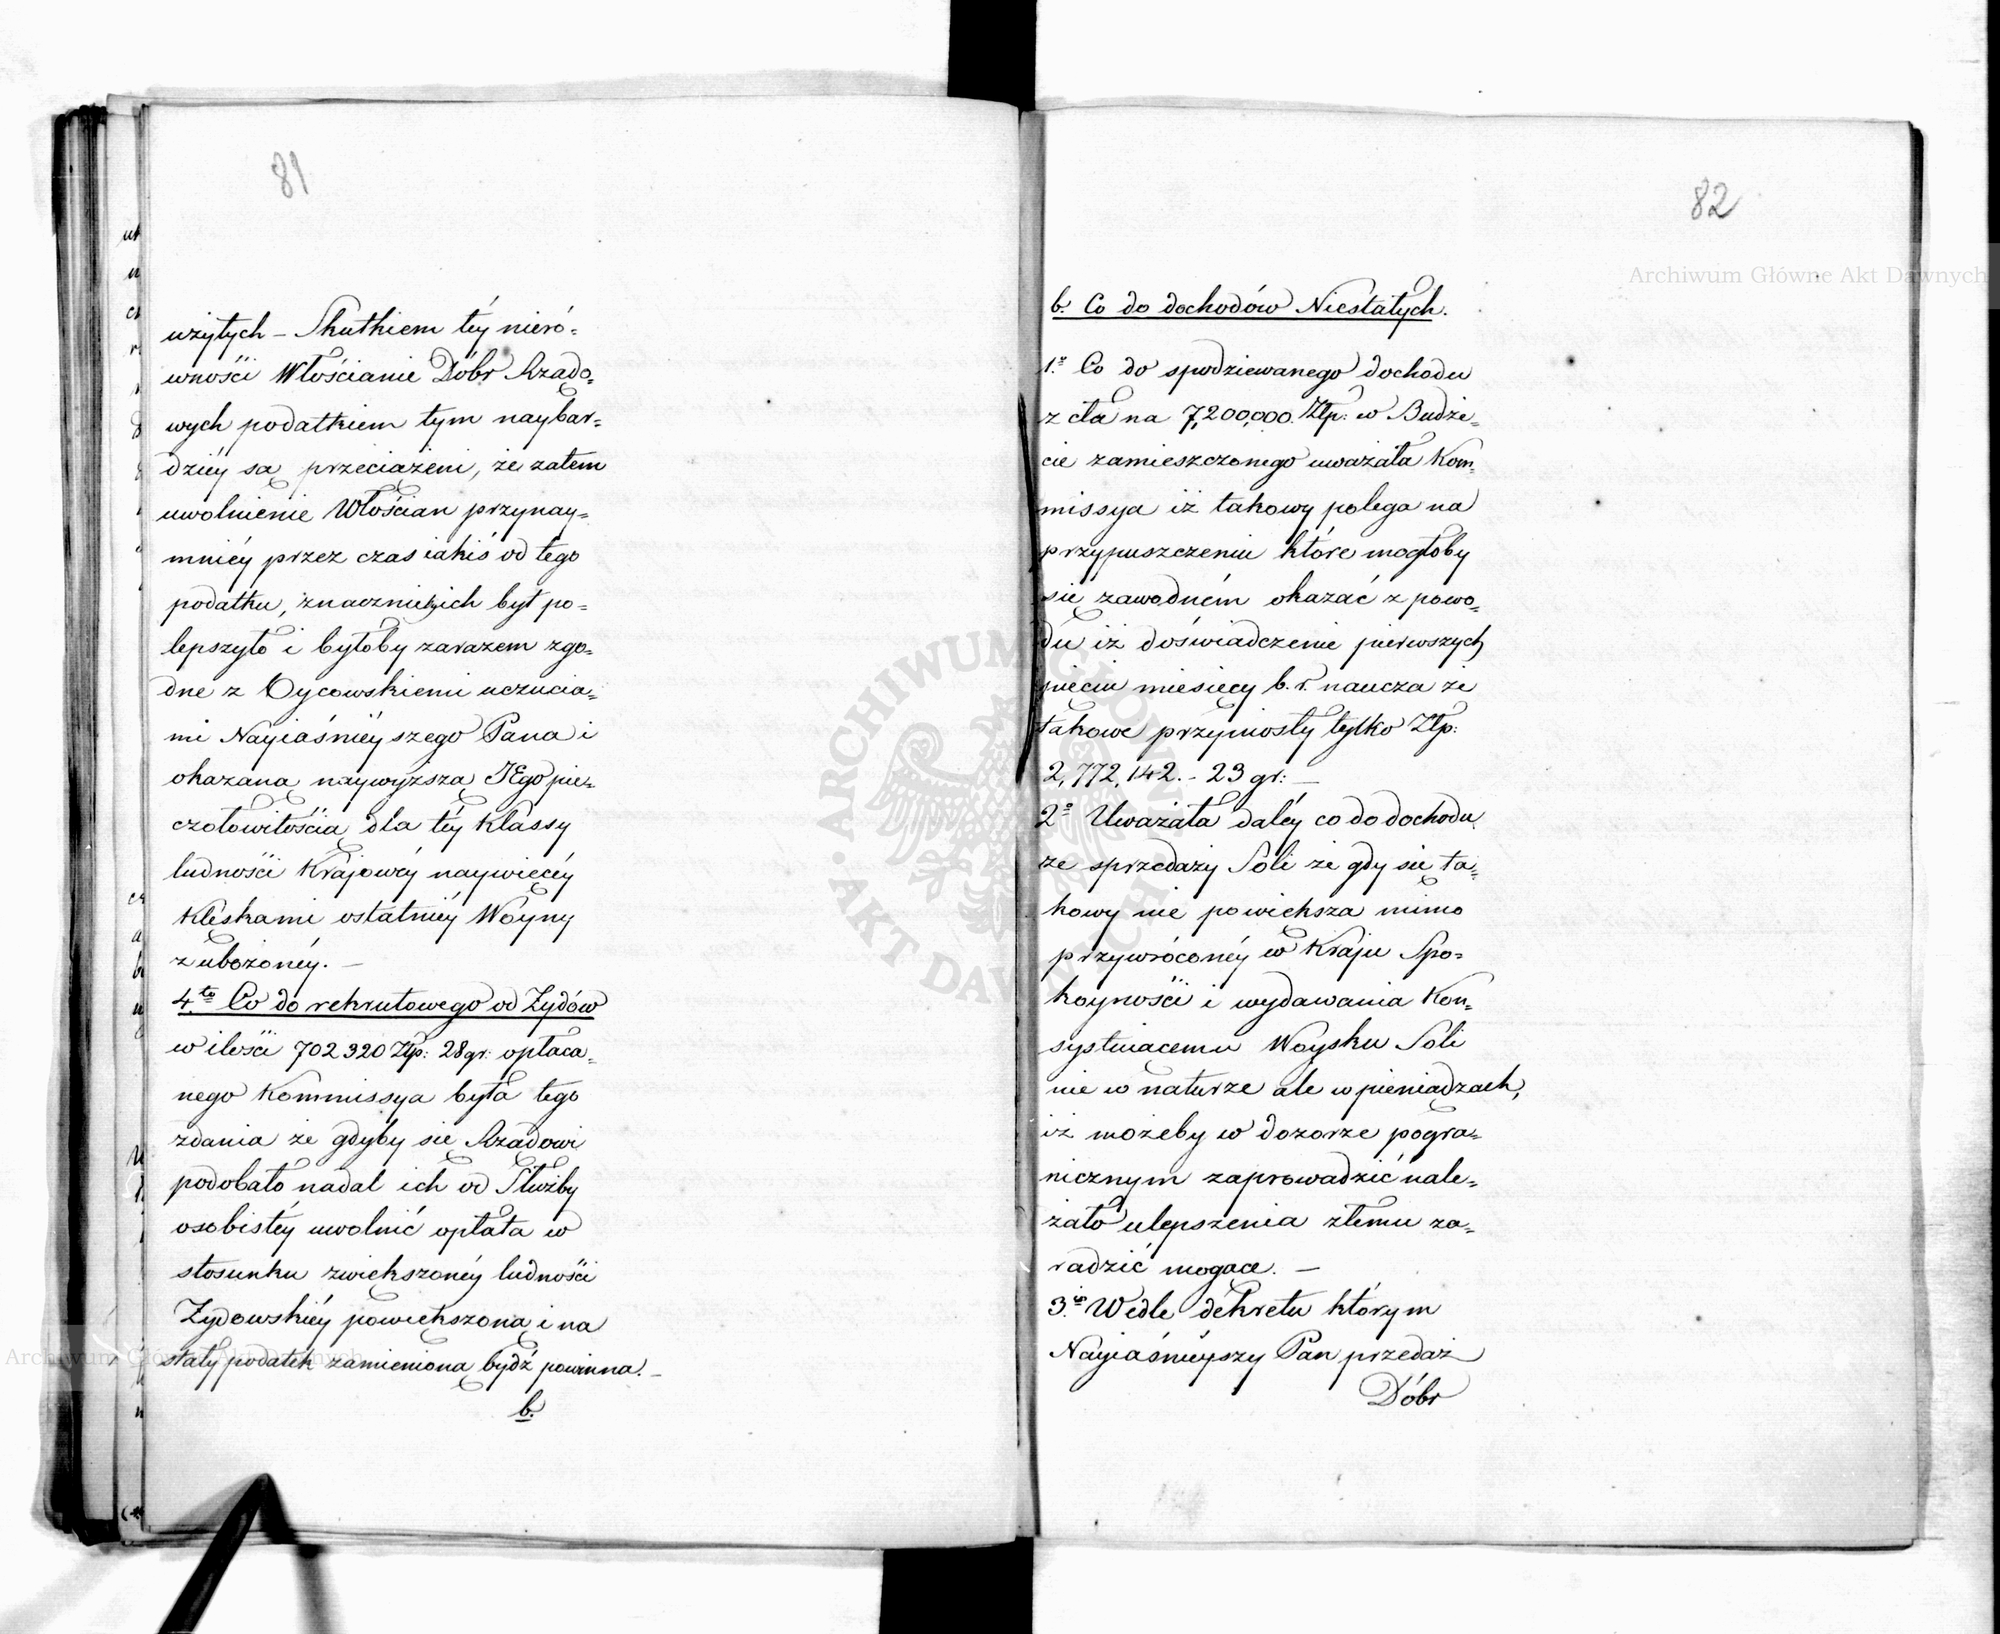 81
użytych – Skutkiem téy nieró=
wności Włościanie Dóbr Rządo=
wych podatkiem tym naybar=
dziéy są przeciążeni, że zatem
uwolnienie Włościan przynay=
mniéy przez czas iakiś od tego
podatku, znacznie by ich byt po=
lepszyło i byłoby zarazem zgo=
dne z Oycowskiemi uczucia=
mi Nayiaśniéyszego Pana i
okazaną naywyższą JEgo pie=
czołowitością dla téy Klassy
ludności Krajowéy naywięcéy
Klęskami ostatniéy Woyny
zubożonéy. –
4.to Co do rekrutowego od Żydów
w ilości 702320 Złp: 28 gr: opłaca=
nego Kommissya była tego
zdania że gdyby się Rządowi
podobało nadal ich od Służby
osobistéy uwolnić opłata w
stosunku zwiększonéy ludności
Żydowskiéy powiększoną i na
stały podatek zamienioną bydź powinna. –
b.
82
b. Co do dochodów Niestałych.
1.o Co do spodziewanego dochodu
z cła na 7,200,000. Złp: w Budże=
cie zamieszczonego uważała Kom=
missya iż takowy polega na
przypuszczeniu które mogłoby
się zawodném okazać z powo=
du iż doświadczenie pierwszych
pięciu miesięcy b. r. naucza że
takowe przyniosły tylko Złp:
2,772,142. – 23 gr: –
2.o Uważała daléy co do dochodu
ze sprzedaży Soli że gdy się ta=
kowy nie powiększa mimo
przywróconéy w Kraju Spo=
koyności i wydawania Kon=
systuiącemu Woysku Soli
nie w naturze ale w pieniądzach,
iż możeby w dozorze pogra=
nicznym zaprowadzić nale=
żało ulepszenia złemu za=
radzić mogące. –
3.io Wedle dekretu którym
Nayiaśniéyszy Pan przedaż
Dóbr
Archiwum Główne Akt Dawnych
Archiwum Główne Akt Dawnych
· ARCHIWUM GŁÓWNE · AKT DAWNYCH